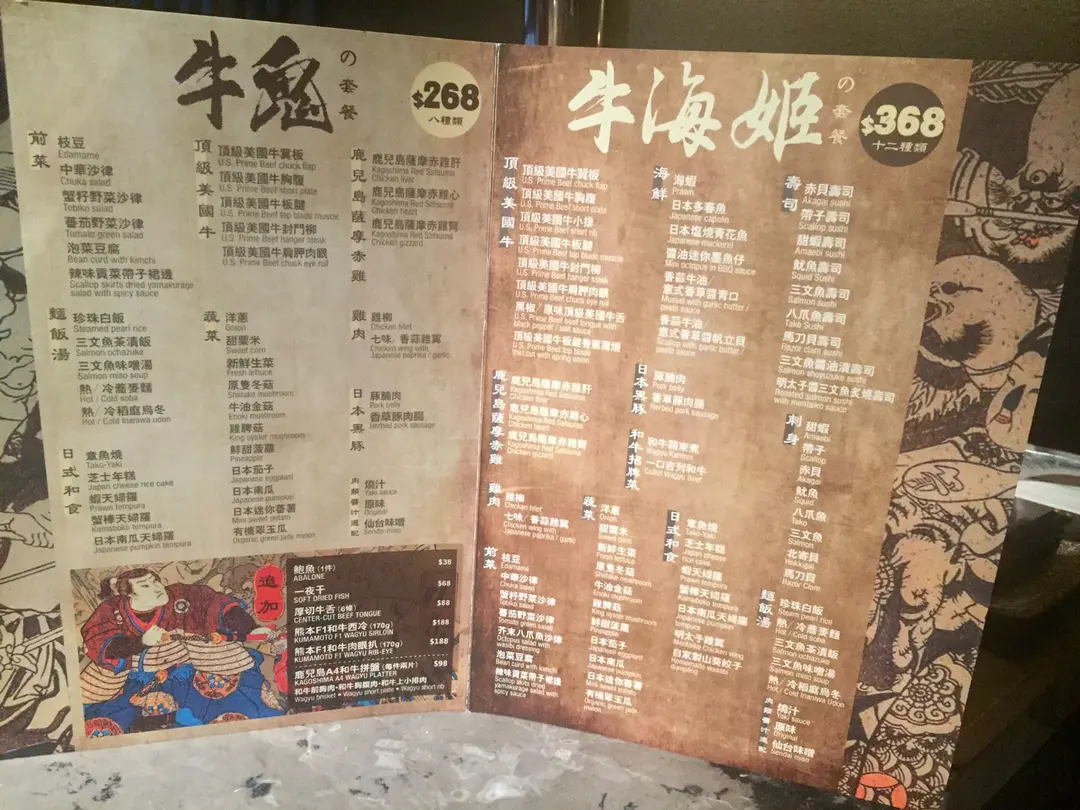 牛鬼
の套餐
$268
八種類
前菜
枝豆
Edamame
中華沙律
Chuka salad
蟹籽野菜沙律
Tobiko salad
蕃茄野菜沙律
Tomato green salad
泡菜豆腐
Bean curd with kimchi
辣味貢菜帶子裙邊
Scallop skirts dried yamakurage
salad with spicy sauce
麵飯湯
珍珠白飯
Steamed pearl rice
三文魚茶漬飯
Salmon ochazuke
三文魚味噌湯
Salmon miso soup
熱/冷蕎麥麵
Hot / Cold soba
熱/冷稻庭烏冬
Hot / Cold Inaniwa udon
日式和食
章魚燒
Tako-Yaki
芝士年糕
Japan cheese rice cake
蝦天婦羅
Prawn tempura
蟹棒天婦羅
Kamaboko tempura
日本南瓜天婦羅
Japanese pumpkin tempura
頂級美國牛
頂級美國牛冀板
U.S. Prime Beef chuck flap
頂級美國牛胸腹
U.S. Prime Beef short plate
頂級美國牛板腱
U.S. Prime Beef top blade muscle
頂級美國牛封門柳
U.S. Prime Beef hanger steak
頂級美國牛肩胛肉眼
U.S. Prime Beef chuck eye roll
蔬菜
洋蔥
Onion
甜粟米
Sweet corn
新鮮生菜
Fresh lettuce
原隻冬菇
Shiitake mushroom
牛油金菇
Enoki mushroom
雞脾菇
King oyster mushroom
鮮甜菠蘿
Pineapple
日本茄子
Japanese eggplant
日本南瓜
Japanese pumpkin
日本迷你蕃薯
Mini sweet potato
有機翠玉瓜
Organic green jade melon
鹿兒島薩摩赤雞
鹿兒島薩摩赤雞肝
Kagoshima Red Satsuma
Chicken liver
鹿兒島薩摩赤雞心
Kagoshima Red Satsuma
Chicken heart
鹿兒島薩摩赤雞腎
Kagoshima Red Satsuma
Chicken gizzard
雞肉
雞柳
Chicken fillet
七味/香蒜雞翼
Chicken wing with
Japanese paprika / garlic
日本黑豚
豚腩肉
Pork belly
香草豚肉腸
Herbed pork sausage
肉類醬汁選配
燒汁
Yaki sauce
原味
Original
仙台味噌
Sendai miso
追加
鮑魚(1件) $38
ABALONE
一夜干 $68
SOFT DRIED FISH
厚切牛舌(6條) $88
CENTER-CUT BEEF TONGUE
熊本F1和牛西冷(170g) $188
KUMAMOTO F1 WAGYU SIRLOIN
熊本F1和牛肉眼扒(170g) $188
KUMAMOTO F1 WAGYU RIB-EYE
鹿兒島A4和牛拼盤(每件兩片) $98
KAGOSHIMA A4 WAGYU PLATTER
和牛前胸肉•和牛胸腹肉•和牛上小排肉
Wagyu brisket • Wagyu short plate • Wagyu short rib
牛海姬
の套餐
$368
十二種類
頂級美國牛
頂級美國牛冀板
U.S. Prime Beef chuck flap
頂級美國牛胸腹
U.S. Prime Beef short plate
頂級美國牛小排
U.S. Prime Beef short rib
頂級美國牛板腱
U.S. Prime Beef top blade muscle
頂級美國牛封門柳
U.S. Prime Beef hanger steak
頂級美國牛肩胛肉眼
U.S. Prime Beef chuck eye roll
黑椒/原味頂級美國牛舌
U.S. Prime Beef beef tongue with
black pepper / salt sauce
頂級美國牛板腱香蔥薄燒
U.S. Prime Beef top blade
thin cut with spring onion
鹿兒島薩摩赤雞
鹿兒島薩摩赤雞肝
Kagoshima Red Satsuma
Chicken liver
鹿兒島薩摩赤雞心
Kagoshima Red Satsuma
Chicken heart
鹿兒島薩摩赤雞腎
Kagoshima Red Satsuma
Chicken gizzard
雞肉
雞柳
Chicken fillet
七味/香蒜雞翼
Chicken wing with
Japanese paprika / garlic
前菜
枝豆
Edamame
中華沙律
Chuka salad
蟹籽野菜沙律
Tobiko salad
蕃茄野菜沙律
Tomato green salad
芥末八爪魚沙律
Octopus salad with
wasabi dressing
泡菜豆腐
Bean curd with kimchi
辣味貢菜帶子裙邊
Scallop skirts dried
yamakurage salad with
spicy sauce
海鮮
海蝦
Prawn
日本多春魚
Japanese capelin
日本塩燒青花魚
Japanese mackerel
醬油迷你墨魚仔
Mini octopus in BBQ sauce
香蒜牛油/
意式香草醬青口
Mussel with garlic butter /
pesto sauce
香蒜牛油/
意式香草醬帆立貝
Scallop with garlic butter /
pesto sauce
日本黑豚
豚腩肉
Pork belly
香草豚肉腸
Herbed pork sausage
和牛招牌菜
和牛關東煮
Wagyu Kantoni
一口吉列和牛
Cutlet Wagyu Beef
蔬菜
洋蔥
Onion
甜粟米
Sweet corn
新鮮生菜
Fresh lettuce
原隻冬菇
Shiitake mushroom
牛油金菇
Enoki mushroom
雞脾菇
King oyster mushroom
鮮甜菠蘿
Pineapple
日本茄子
Japanese eggplant
日本南瓜
Japanese pumpkin
日本迷你蕃薯
Mini sweet potato
有機翠玉瓜
Organic green jade
melon
日式和食
章魚燒
Tako-Yaki
芝士年糕
Japan cheese
rice cake
蝦天婦羅
Prawn tempura
蟹棒天婦羅
Kamaboko tempura
日本南瓜天婦羅
Japanese pumpkin
tempura
明太子雞翼
Mentaiko Chicken wing
自家製山葵餃子
壽司
赤貝壽司
Akagai sushi
帶子壽司
Scallop sushi
甜蝦壽司
Amaebi sushi
魷魚壽司
Squid Sushi
三文魚壽司
Salmon sushi
八爪魚壽司
Tako Sushi
馬刀貝壽司
Razor clam sushi
三文魚醬油漬壽司
Salmon shoyuzuke sushi
明太子醬三文魚炙燒壽司
Salmon roasted sushi
with mentaiko sauce
刺身
甜蝦
Amaebi
帶子
Scallop
赤貝
Akagai
魷魚
Squid
八爪魚
Tako
三文魚
Salmon
北寄貝
Hokkigai
馬刀貝
Razor Clam
麵飯湯
珍珠白飯
Steamed pearl rice
熱/冷蕎麥麵
Hot / Cold soba
三文魚茶漬飯
Salmon ochazuke
三文魚味噌湯
Salmon miso soup
熱/冷稻庭烏冬
Hot / Cold Inaniwa Udon
肉類醬汁選配
燒汁
Yaki sauce
原味
Original
仙台味噌
Sendai miso